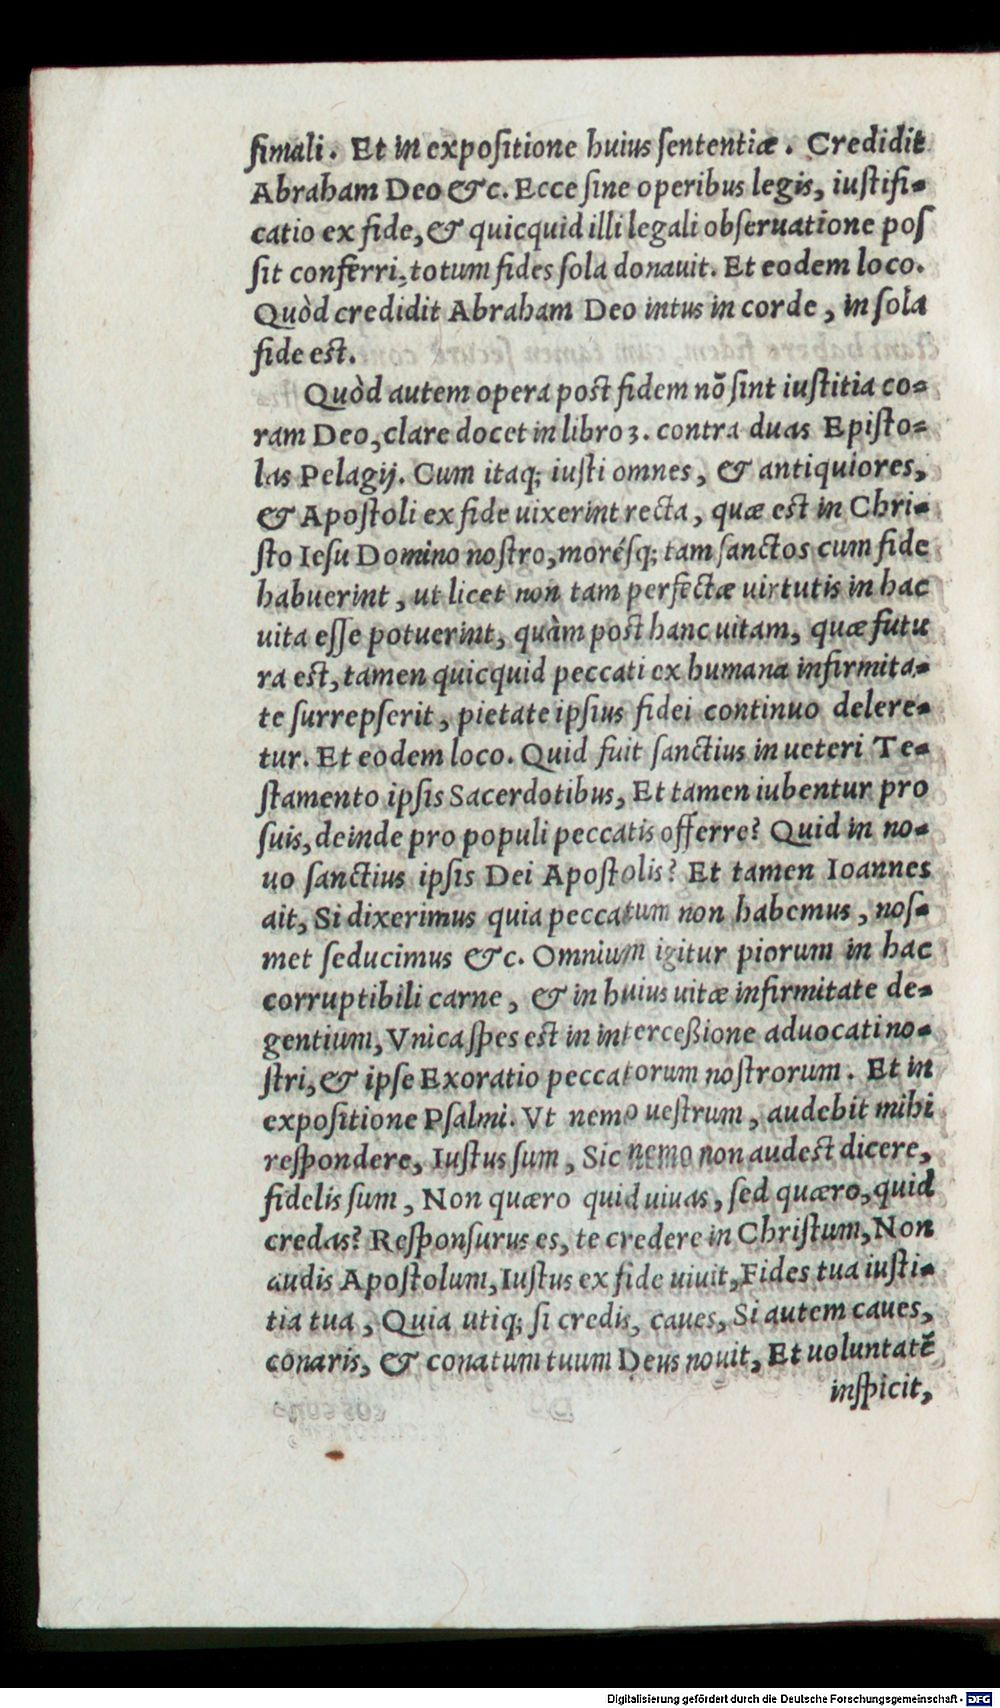 ſimali. Et in expoſitione huius ſententiæ. Credidit
Abraham Deo &c. Ecce ſine operibus legis, iuſtifi-
catio ex fide, & quicquid illi legali obſeruatione poſ
ſit conferri, totum fides ſola donauit. Et eodem loco.
Quòd credidit Abraham Deo intus in corde, in ſola
fide eſt.
Quòd autem opera poſt fidem nō ſint iuſtitia co-
ram Deo, clare docet in libro 3. contra duas Epiſto-
las Pelagij. Cum itaq; iuſti omnes, & antiquiores,
& Apoſtoli ex fide uixerint recta, quæ eſt in Chri-
ſto Ieſu Domino noſtro, moréſq; tam ſanctos cum fide
habuerint, ut licet non tam perfectæ uirtutis in hac
uita eſſe potuerint, quàm poſt hanc uitam, quæ futu
ra eſt, tamen quicquid peccati ex humana infirmita-
te ſurrepſerit, pietate ipſius fidei continuo delere-
tur. Et eodem loco. Quid fuit ſanctius in ueteri Te-
ſtamento ipſis Sacerdotibus, Et tamen iubentur pro
ſuis, deinde pro populi peccatis offerre? Quid in no-
uo ſanctius ipſis Dei Apoſtolis? Et tamen Ioannes
ait, Si dixerimus quia peccatum non habemus, noſ-
met ſeducimus &c. Omnium igitur piorum in hac
corruptibili carne, & in huius uitæ infirmitate de-
gentium, Vnica ſpes eſt in interceßione aduocati no-
ſtri, & ipſe Exoratio peccatorum noſtrorum. Et in
expoſitione Pſalmi. Vt nemo ueſtrum, audebit mihi
reſpondere, Iuſtus ſum, Sic nemo non audeſt dicere,
fidelis ſum, Non quæro quid uiuas, ſed quæro, quid
credas? Reſponſurus es, te credere in Chriſtum, Non
audis Apoſtolum, Iuſtus ex fide uiuit, Fides tua iuſti-
tia tua, Quia utiq; ſi credis, caues, Si autem caues,
conaris, & conatum tuum Deus nouit, Et uoluntatē
inſpicit,
Digitalisierung gefördert durch die Deutsche Forschungsgemeinschaft - DFG